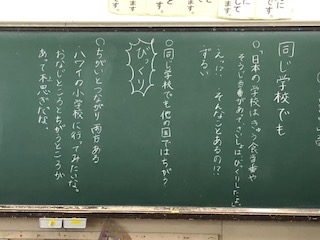 同じ学校でも
○、日本の学校はきゅう食当番や
そうじ当番があって、さいしょは、びっくりしたよ。
・えっ!?そんなことあるの!?
・ずるい
○同じ学校でも他の国ではちがう
びっくり
○ちがいとつながり両方ある
・ハワイの小学校に行ってみたいな。
おなじところとちがうところが
あって不思ぎだな。